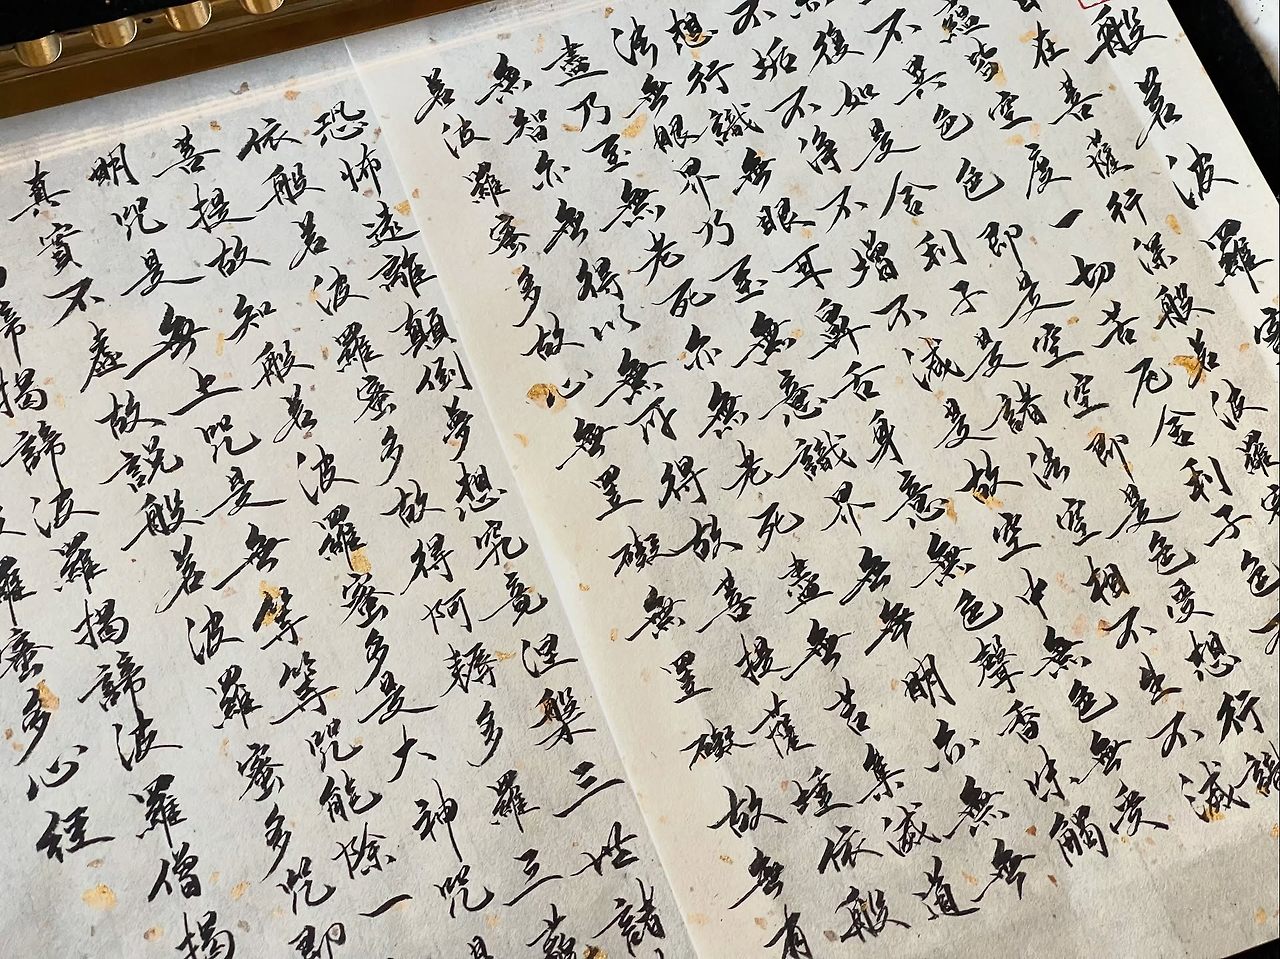 般若波羅蜜
在菩薩行深般若波羅蜜
蘊皆空度一切苦厄舍利子色不
不異色色即是空空即是色受想行識
復如是舍利子是諸法空相不生不滅
不垢不淨不增不減是故空中無色無受
想行識無眼耳鼻舌身意無色聲香味觸
法無眼界乃至無意識界無無明亦無無
盡乃至無老死亦無老死盡無苦集滅道
無智亦無得以無所得故菩提薩埵依般
若波羅蜜多故心無罣礙無罣礙故無有
恐怖遠離顛倒夢想究竟涅槃三世諸
依般若波羅蜜多故得阿耨多羅三藐
菩提故知般若波羅蜜多是大神咒是
明咒是無上咒是無等等咒能除一
真實不虛故說般若波羅蜜多咒即
諦揭諦波羅揭諦波羅僧揭
羅蜜多心經